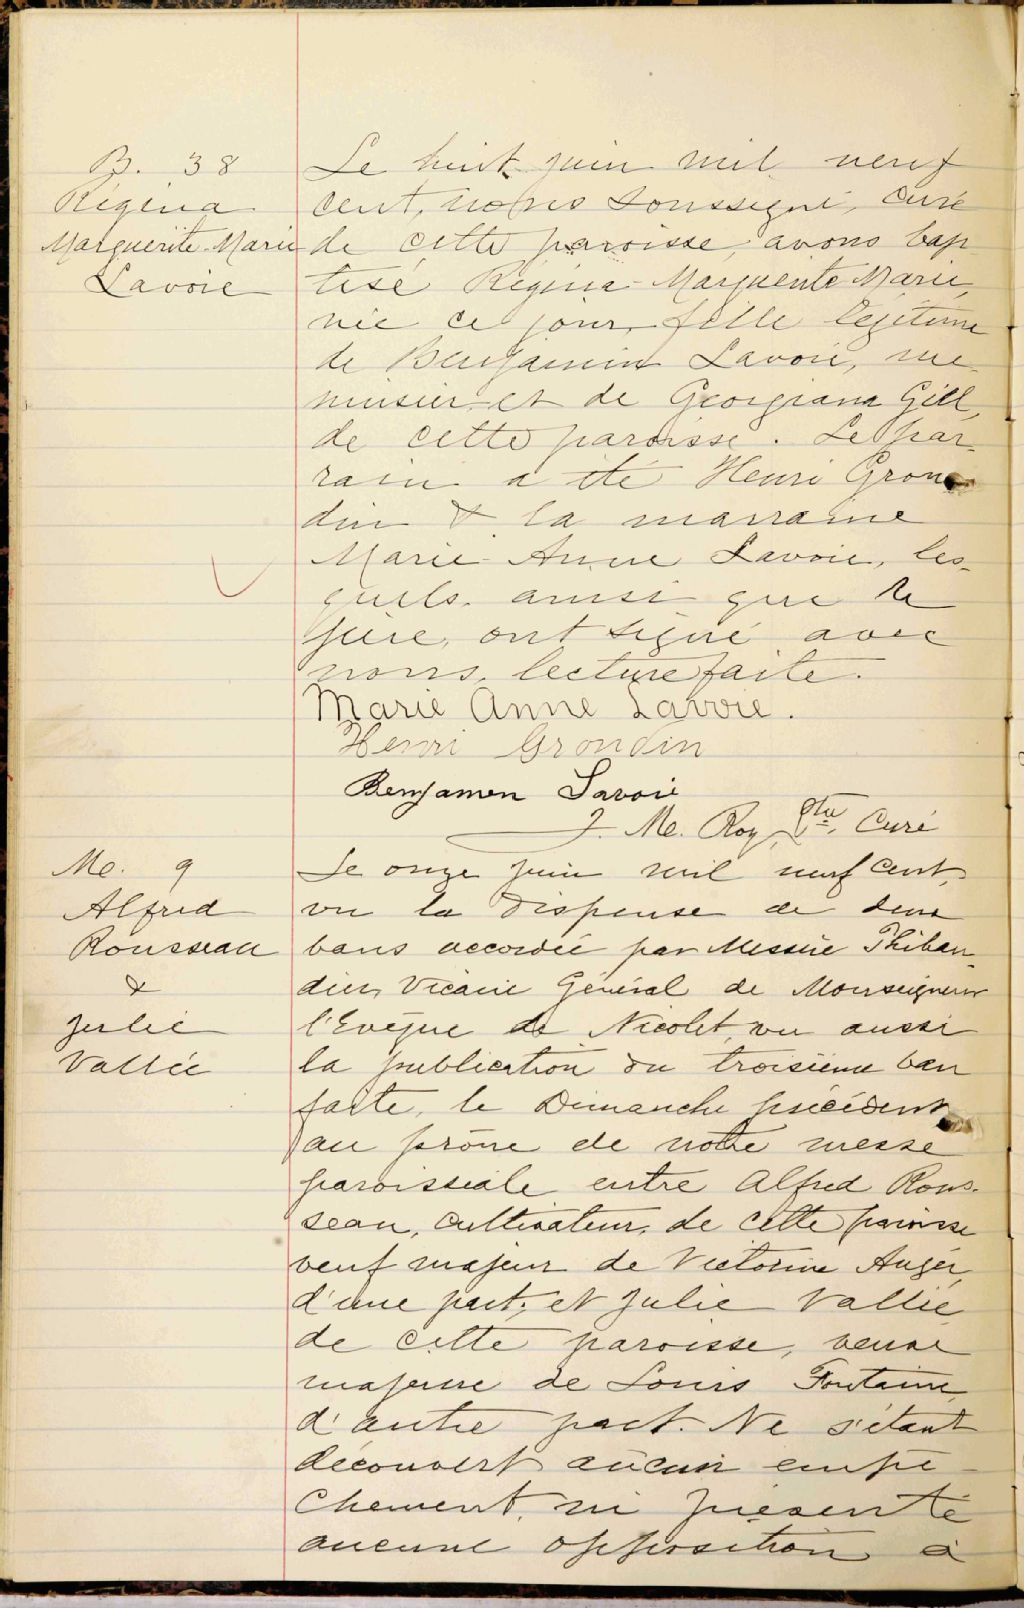 B. 38
Régina
Marguerite-Marie
Lavoie
Le huit juin mil neuf
cent, nous soussigné, curé
de cette paroisse, avons bap
tisé Régina-Marguerite Marie,
née ce jour, fille légitime
de Benjamin Lavoie, me
nuisier et de Georgiana Gill,
de cette paroisse. Le par-
rain a été Henri Gron
din & la marraine
Marie-Anne Lavoie, les-
quels, ainsi que le
père, ont signé avec
nous, lecture faite.
Marie Anne Lavoie.
Henri Grondin
Benjamen Lavoie
J. Me. Roy, Ptre, Curé
Me. 9
Alfred
Rousseau
&
Julie
Vallée
Le onze juin mil neuf cent,
vu la dispense de deux
bans accordée par Messire Thibau-
dier, Vicaire Général de Monseigneur
l'Evêque de Nicolet, vu aussi
la publication du troisième ban
faite, le Dimanche précédent
au prône de notre messe
paroissiale entre Alfred Rous-
seau, cultivateur, de cette paroisse
veuf majeur de Victorine Auger,
d'une part, et Julie Vallée
de cette paroisse, veuve
majeure de Louis Fontaine,
d'autre part. Ne s'étant
découvert aucun empê-
chement, ni présenté
aucune opposition à